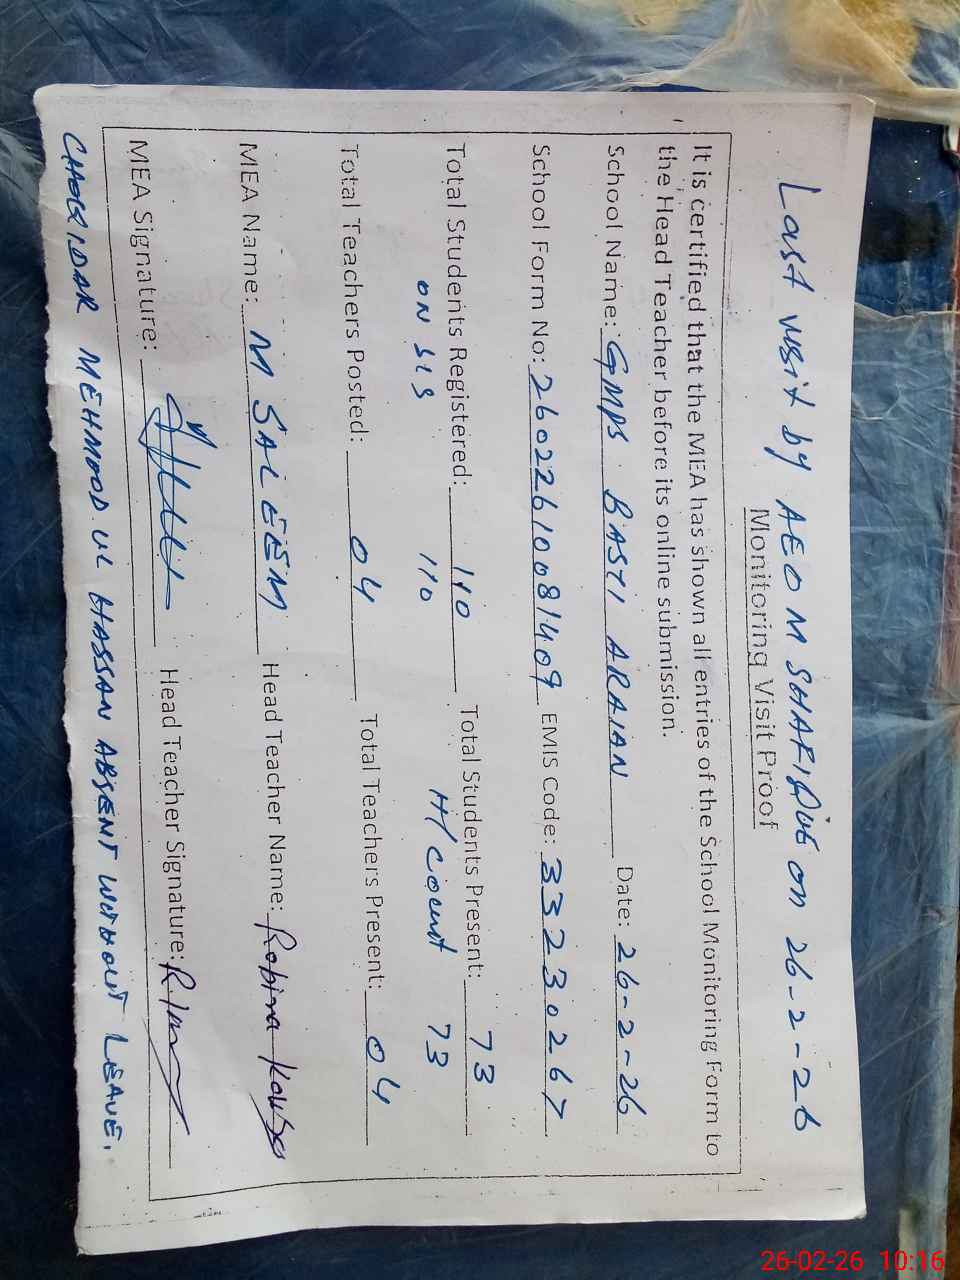 Last visit by AEO M SHAFIQUE on 26-2-26
Monitoring Visit Proof
It is certified that the MEA has shown all entries of the School Monitoring Form to
the Head Teacher before its online submission.
School Name: GMPS BASTI ARAIAN Date: 26-2-26
School Form No: 26022610081409 EMIS Code: 33230267
Total Students Registered: 110 Total Students Present: 73
ON SIS 110 H/Count 73
Total Teachers Posted: 04 Total Teachers Present: 04
MEA Name: M SALEEM Head Teacher Name: Robina Kousar
MEA Signature: Head Teacher Signature:
CHOKIDAR MEHMOOD UL HASSAN ABSENT WITHOUT LEAVE.
26-02-26 10:16